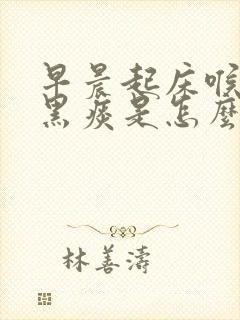 早晨起床喉
黑痰是怎麼
林善濤